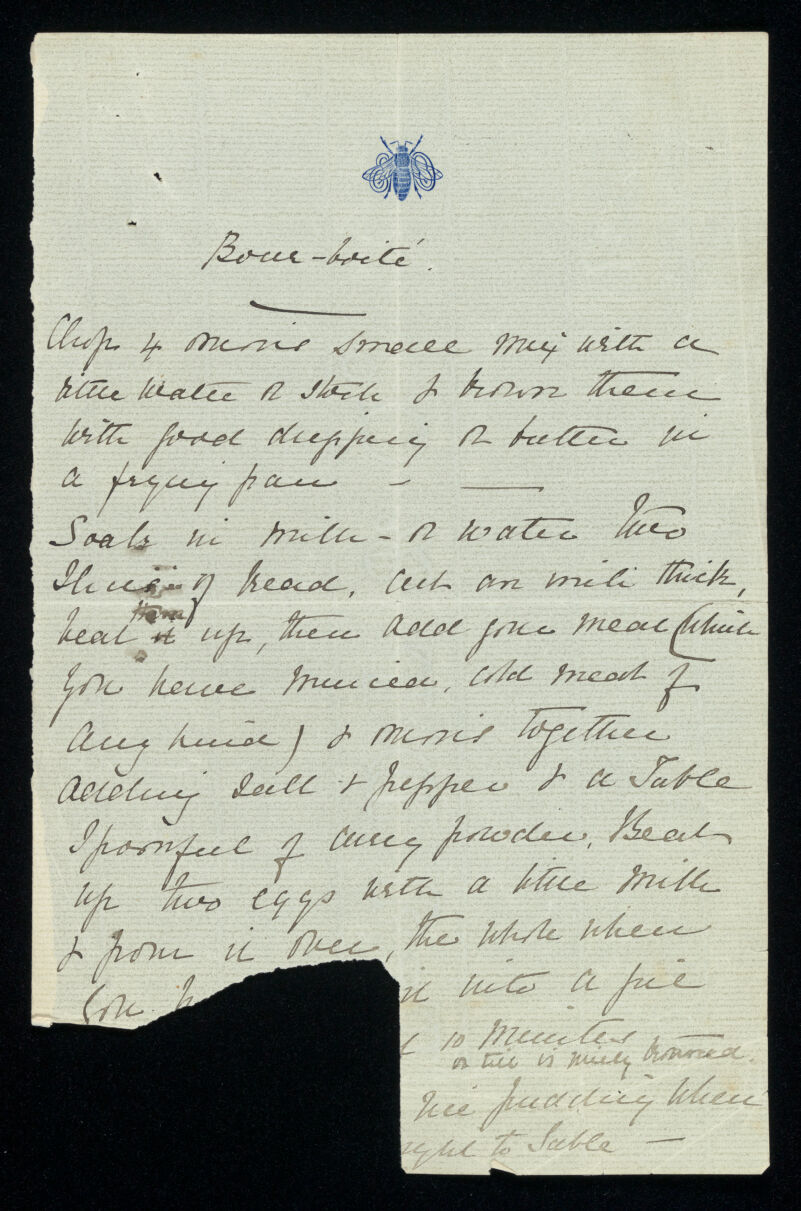 Bour-boité.
Chop 4 onions small mix with a
little water or stock & brown them
with good dripping or butter in
a frying pan —
Soak in milk - or water two
Slices of bread, cut an inch thick,
beat them up, then add your meat (which
you have minced, cold meat of
any kind) & onions together
adding salt & pepper & a Table
Spoonful of curry powder. Beat
up two eggs with a little milk
& pour it over, the whole when
you it into a pie
10 minutes
or till is nicely browned.
like pudding when
to Table —